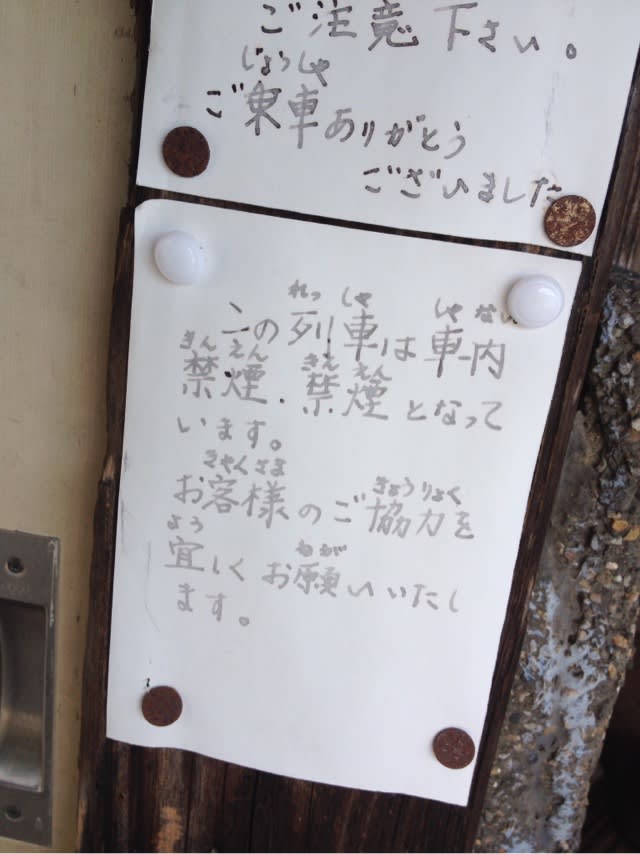 ご注意下さい。
じょうしゃ
ご乗車ありがとう
ございました
れっ しゃ しゃ ない
この列車は車内
きん えん きえ えん
禁煙.禁煙となって
います。
きゃくさま きょうりょく
お客様のご協力を
よろ ねが
宜しくお願いいたし
ます。